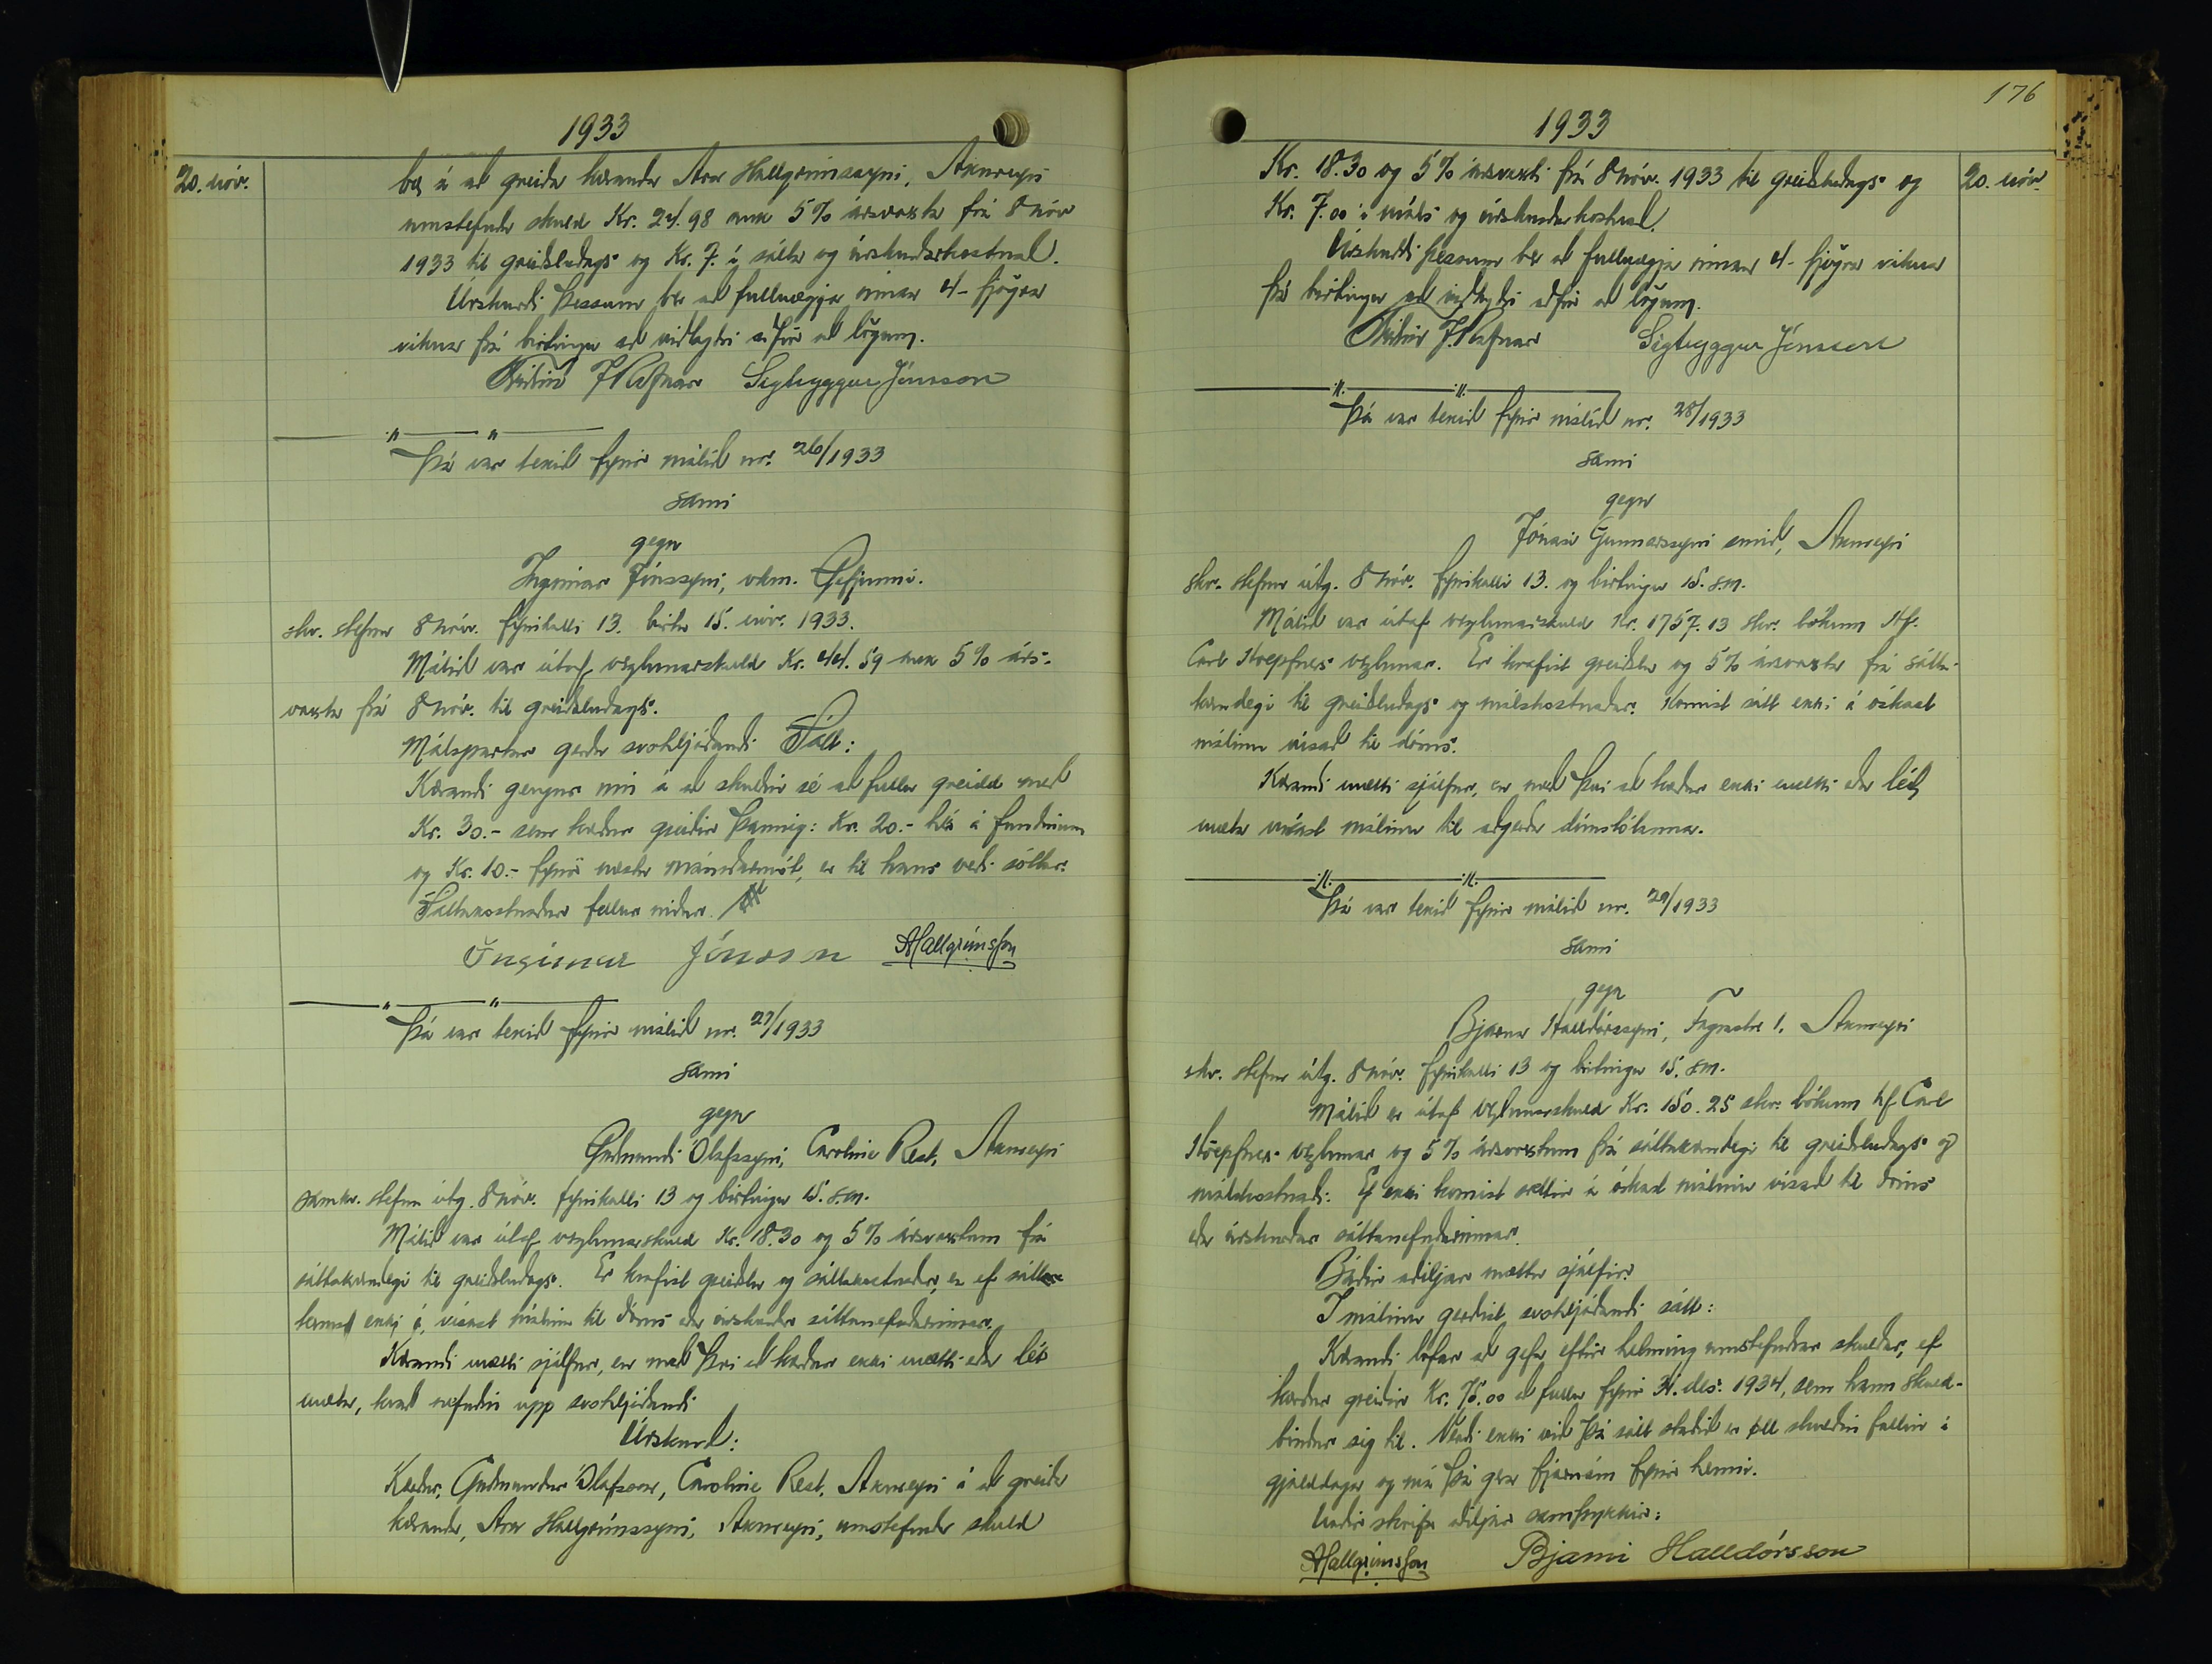 1933
20. nóv.
ber á að greiða kæranda Ara Hallgrímssyni, Akureyri
umstefnda skuld Kr. 24.98 auk 5% ársvaxta frá 8 nóv
1933 til greiðsludags og Kr. 7. í sátta og úrskurðarkostnað.
Úrskurði þessum ber að fullnægja innan 4- fjögra
vikna frá birtingu að viðlagðri aðför að lögum.
Friðrik J Rafnar Sigtryggur Jónsson
Þá var tekið fyrir málið nr. 26/1933
sami
gegn
Ingimar Jónssyni, vkm. Gefjunni.
skv. stefnu 8 nóv. fyrirkalli 13. birtu 15. nóv. 1933.
Málið var útaf verzlunarskuld Kr. 44.59 auk 5% árs-
vaxta frá 8 nóv. til greiðsludags.
Málspartar gerðu svohljóðandi Sátt:
Kærandi gengur inn á að skuldin sé að fullu greidd með
Kr. 30.- sem kærður greiðir þannig: Kr. 20.- hér á fundinum
og Kr. 10.- fyrir næstu mánaðamót, er til hans verði sóttar.
Sáttakostnaður fellur niður.
Ingimar Jónsson AHallgrímsson
Þá var tekið fyrir málið nr. 27/1933
sami
gegn
Guðmundi Ólafssyni, Caroline Rest, Akureyri
samkv. stefnu útg. 8 nóv. fyrirkalli 13 og birtingu 15. s.m.
Málið var útaf verzlunarskuld Kr. 18.30 og 5% ársvöxtum frá
sáttakærudegi til greiðsludags. Er krafist greiðslu og sáttakostnaðar, en ef sátt
komist ekki á, vísast málinu til dóms eða úrskurðar sáttanefndarinnar.
Kærandi mætti sjálfur, en með því að kærður ekki mætti eða lét
mæta, kvað nefndin upp svohljóðandi
Úrskurð:
Kærður, Guðmundur Ólafsson, Caroline Rest, Akureyri á að greiða
kæranda, Ara Hallgrímssyni, Akureyri, umstefnda skuld
176
1933
20. nóv.
Kr. 18.30 og 5% ársvexti frá 8 nóv. 1933 til greiðsludags og
Kr. 7.00 í máls og úrskurðarkostnað.
Úrskurði þessum ber að fullnægja innan 4- fjögra vikna
frá birtingu að viðlagðri aðför að lögum.
Friðrik J. Rafnar Sigtryggur Jónsson
Þá var tekið fyrir málið nr. 28/1933
sami
gegn
Jónasi Gunnarssyni smið, Akureyri
skv. stefnu útg. 8 nóv. fyrirkalli 13. og birtingu 15. s.m.
Málið var útaf verzlunarskuld Kr. 1757.13 skv. bókum Hf.
Carl Höepfners verzlunar. Er krafist greiðslu og 5% ársvaxta frá sátta-
kærudegi til greiðsludags og málskostnaðar. Komist sátt ekki á óskast
málinu vísað til dóms.
Kærandi mætti sjálfur, en með því að kærður ekki mætti eða lét
mæta vísast málinu til aðgerða dómstólanna.
Þá var tekið fyrir málið nr. 29/1933
sami
gegn
Bjarna Halldórssyni, Fagrastr 1. Akureyri
skv. stefnu útg. 8 nóv. fyrirkalli 13 og birtingu 15. s.m.
Málið er útaf verzlunarskuld Kr. 150.25 skv. bókum hf Carl
Höepfners verzlunar og 5% ársvöxtum frá sáttakærudegi til greiðsludags og
málskostnaði. Ef ekki komist sættir á óskast málinu vísað til dóms
eða úrskurðar sáttanefndarinnar.
Báðir aðiljar mættu sjálfir.
Í málinu gerðist svohljóðandi sátt:
Kærandi lofar að gefa eftir helming umstefndrar skuldar, ef
kærður greiðir Kr. 75.00 að fullu fyrir 31. des. 1934, sem hann skuld-
bindur sig til. Verði ekki við þá sátt staðið er öll skuldin fallin í
gjalddaga og má þá gera fjárnám fyrir henni.
Undir skrifa aðiljar samþykkir:
AHallgrímsson Bjarni Halldórsson